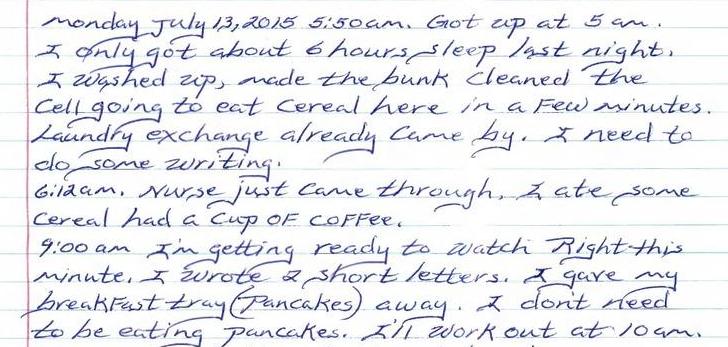 monday July 13, 2015 5:50 am. Got up at 5 am.
I only got about 6 hours sleep last night.
I washed up, made the bunk cleaned the
cell going to eat cereal here in a few minutes.
Laundry exchange already came by. I need to
do some writing.
6:12 am. Nurse just came through, I ate some
cereal had a cup of coffee.
9:00 am I'm getting ready to watch Right this
minute. I wrote 2 short letters. I gave my
breakfast tray (Pancakes) away. I don't need
to be eating pancakes. I'll work out at 10 am.